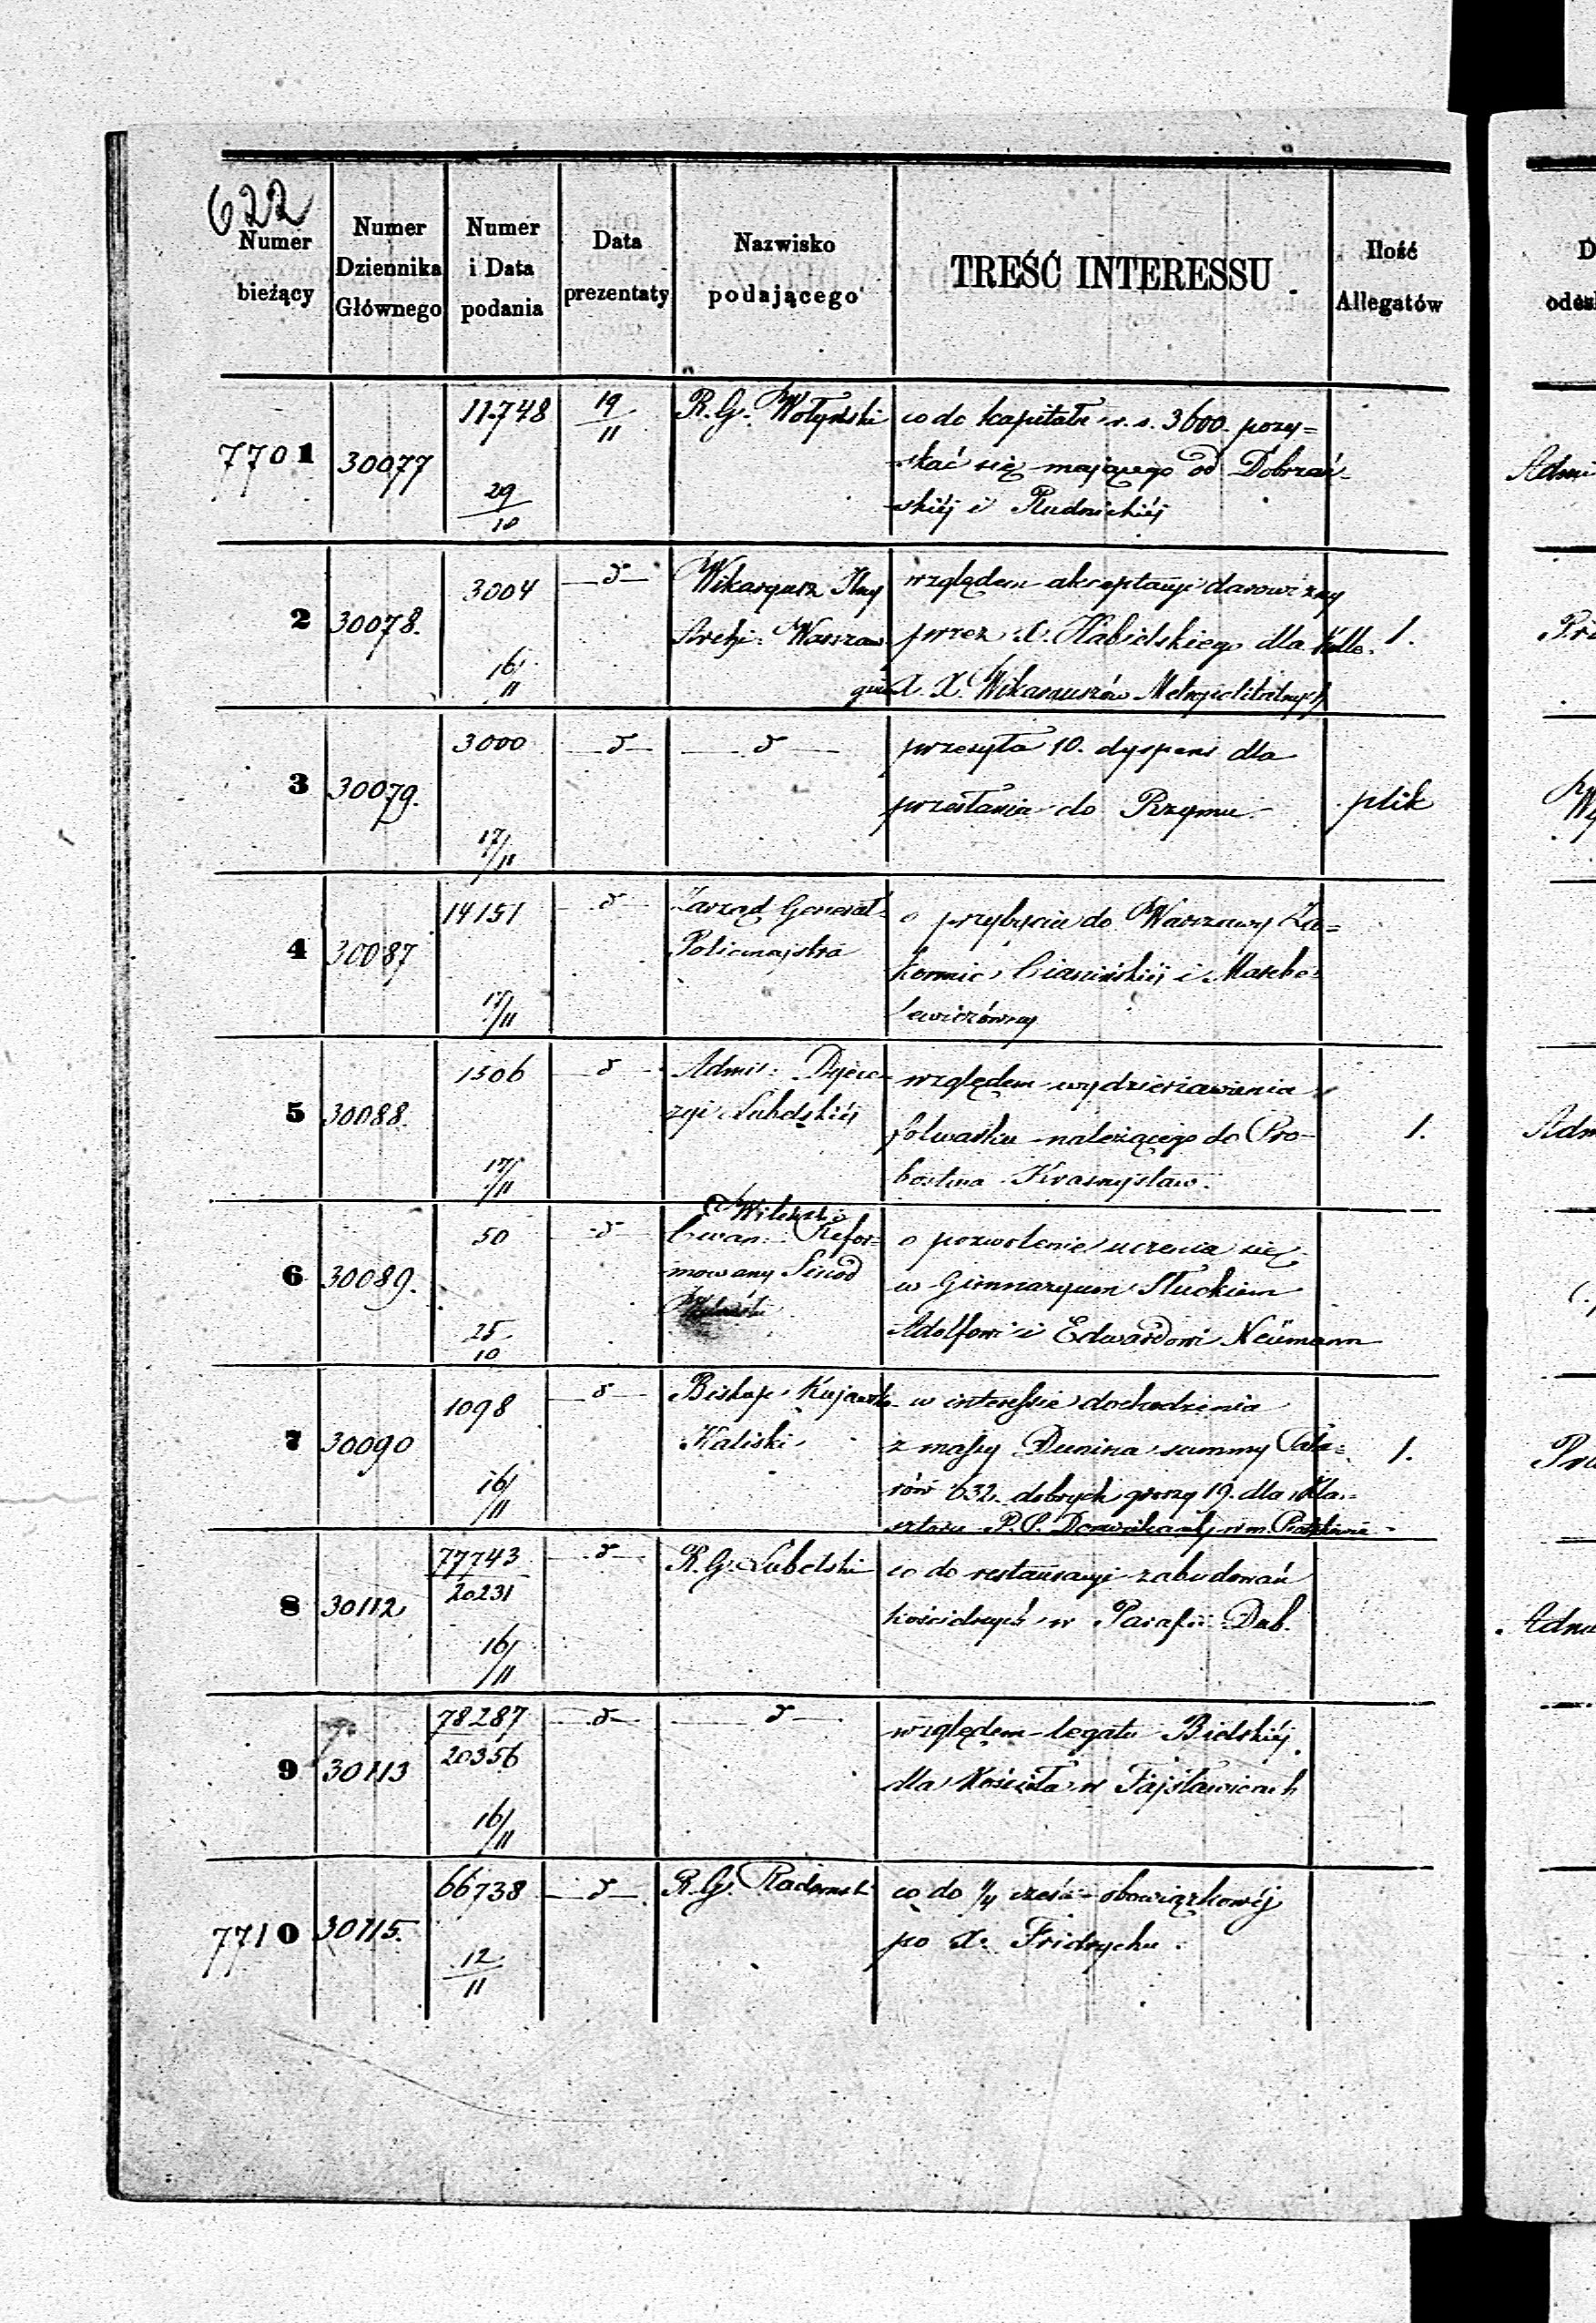 622
Numer bieżący
Numer Dziennika Głównego
Numer i Data podania
Data prezentaty
Nazwisko podającego
TREŚĆ INTERESSU
Ilość Allegatów
D
odes
7701 30077 11748 29/10 19/11 R. G. Wołyński
co do kapitału r. s. 3600. pozy=
skać się mającego od Dobrzań-
skiéj i Rudnickiéj
Admi
2 30078. 3004 16/11 d Wikaryusz
Archi. Warszaw.
względem akceptacyi darowizny
przez X. Kabielskiego dla Kolle.
giu X. X. Wikaryuszów Metropolitalnych
1.
Pr
3 30079. 3000 17/11 d d
przesyła 10. dyspens dla
przesłania do Rzymu.
plik
W
4 30087 14151 17/11 d Zarząd Generał
Policmajstra
o przybyciu do Warszawy Za=
konnic i
lewiczówny
5 30088. 1506 17/11 d Admis: Dyece-
zyi Lubelskiéj
względem wydzierżawienia
folwarku należącego do Pro-
bostwa Krasnystaw.
1.
Adm
6 30089. 50 25/10 d Wileński
Ewan. Refor=
mowany Sinod
o pozwolenie uczenia się
w Gimnazyum Słuckiem
Adolfowi i Edwardowi Neümann
7 30090 1098 16/11 d Biskup Kujawsko
Kaliski
w interessie dochodzenia
z massy Dunina summy Tala=
rów 632. dobrych groszy 19. dla Kla=
sztoru P. P. w m.
1.
Pr
8 30112 77743/20231 16/11 d R. G. Lubelski
co do restauracyi zabudowań
kościelnych w Parafii Dub.
Adm
9 30113 78287/20356 16/11 d d
względem legatu Bielskiéj
dla Kościoła w Fajsławicach
7710 30115. 66738 12/11 d R. G. Radomski
co do 1/4 części obowiązkowéj
po X. Fridrychu.